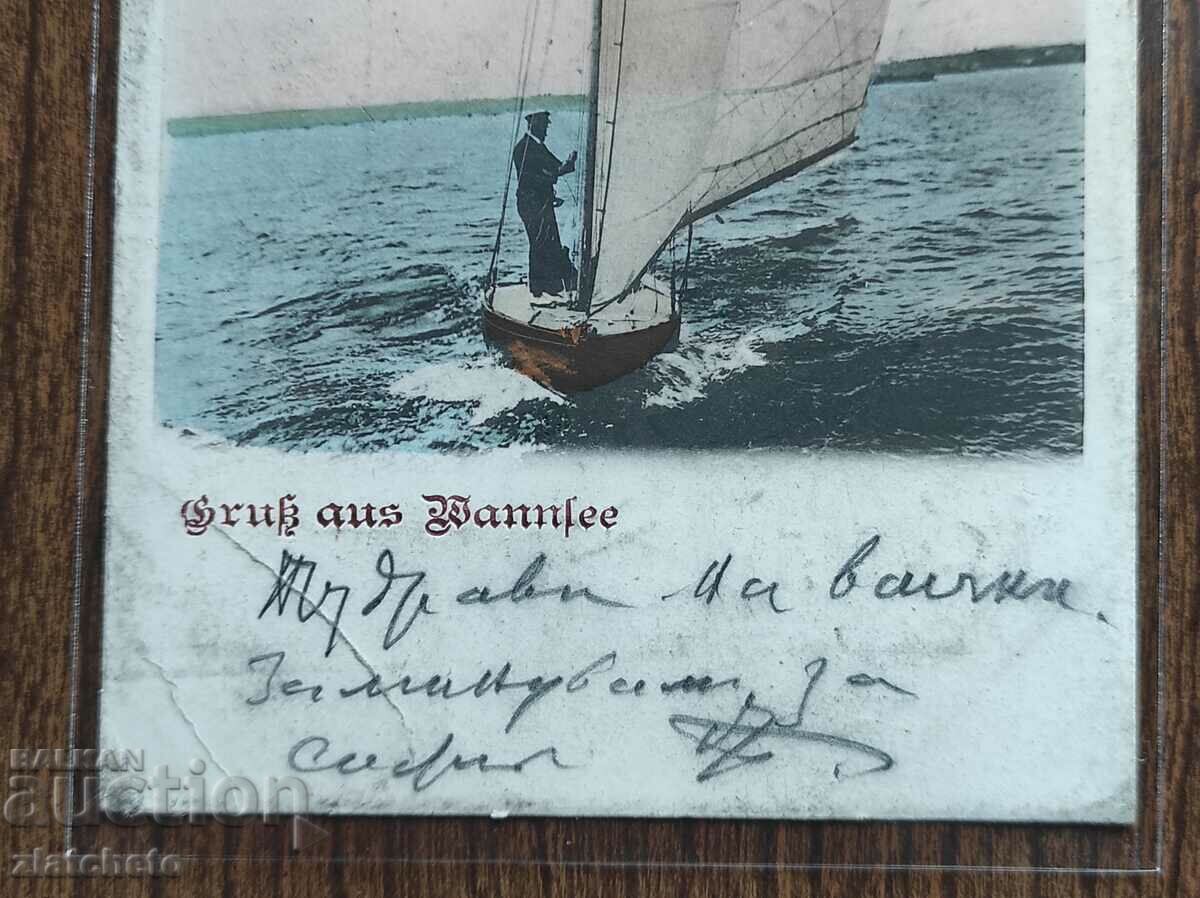 Gruß aus Wannsee
Поздрави на всички.
Заминувам за
София
BALKAN
auction
zlatcheto